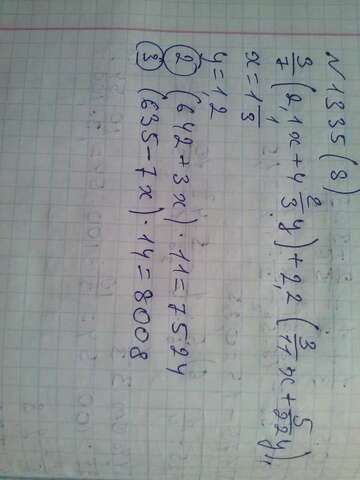 N 1335 (8)
3/7 (2,1x + 4 2/3 y) + 2,2 (3/11 x + 5/22 y),
x = 1 1/3
y = 1,2
② (642 + 3x) · 11 = 7524
③ (635 - 7x) · 14 = 8008